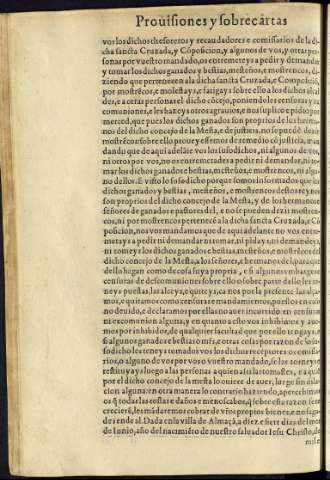 Prouisiones y sobrecartas
vos los dichos thesoreros y recaudadores e comissarios de la di
cha sancta Cruzada, y Cōposicion, y algunos de vos, y otras per
sonas por vuestro mandado, os entremeteys a pedir y demandar
y tomar los dichos ganados y bestias, mesteños, e mostrencos, di
ziendo que pertenecen a la dicha sancta Cruzada, e Composiciō,
por mostrēcos, e molestays, e fatigays sobre ello a los dichos alcal
des, e a otras personas del dicho cōcejo, poniendoles censuras y ex
comuniones, e les hazeys otros agrauios, e nos suplico e pidio por
merced, que pues los dichos ganados son proprios de los herma-
nos del dicho concejo de la Mesta, e de justicia, no se puedē dezir
mostrēcos: sobre ello proueyessemos de remedio cō justicia, man
dando que de aqui adelāte vos los susodichos, ni alguno de vos,
ni otros por vos, no os entremetades a pedir ni demandar, ni to-
mar los dichos ganados e bestias, mesteños, e mostrencos, ni algu
no dellos. E visto lo susodicho porque somos informados que los
dichos ganados y bestias, mesteños, e mostrencos destos reynos
son proprios del dicho concejo de la Mesta, y de los hermanos
señores de ganados e pastores del, e no se pueden dezir mostren-
cos, ni por mostrencos pertenecē a la dicha sancta Cruzada, e Cō
posicion, nos vos mandamos que de aqui adelante no vos entre
metays a pedir ni demandar ni tomar, ni pidays, ni demandeys,
ni tomeys los dichos ganados e bestias, mesteños, e mostrēcos del
dicho concejo de la Mesta, a los señores, e hermanos del, para que
dello hagan como de cosa suya propria, e si algunas embargos e
censuras de descomuniones sobre ello o sobre parte dello les te-
neys puestas, las alceys, e quiteys, ca nos por la presente las alça-
mos, e quitamos como censuras e mandamientos, puestos en caso
no deuido, e declaramos por ellas no auer incurrido en censuras
ni excomunion alguna, y en quanto a esso vos inhibimos y aue-
mos por inhibidos, de qualquier facultad que por ello tengays, e
si algunos ganados e bestias mfs, e otras cosas por razon de lo su-
sodicho les teneys tomados vos los dichos receptores o comissa-
rios, o alguno de vos por vos o vuestro mandado, se las torneys y
restituyays luego a las personas a quien assi las tomastes, e a quiē
por el dicho concejo de la mesta lo ouiere de auer, luego sin dila-
cion alguna: en otra manera lo contrario haziendo, apercebimos
os q̄ todas las costas e daños e menoscabos, q̄ sobre esta razon se re
crecierē, les mādaremos cobrar de vr̄os propios bienes, e no faga-
des ende al. Dada en la villa de Almaçā, a diez e siete dias del mes
de Iunio, año del nacimiēto de nuestro saluador Iesu Christo, de
mil e